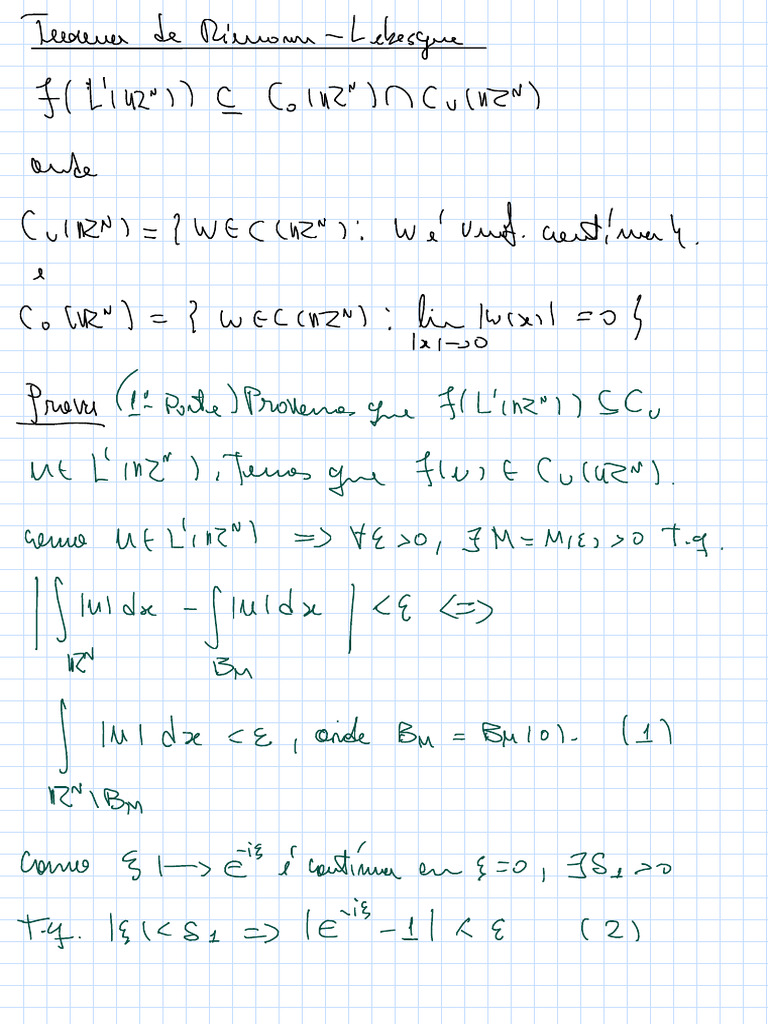 Teorema de Riemann-Lebesgue
F(L¹(ℝᴺ)) ⊆ C₀(ℝᴺ) ∩ Cᵤ(ℝᴺ)
onde
Cᵤ(ℝᴺ) = { w ∈ C(ℝᴺ): w é unif. contínua }.
e
C₀(ℝᴺ) = { w ∈ C(ℝᴺ): lim |w(x)| = 0 }
|x|→0
Prova (1ª Parte) Provemos que F(L¹(ℝᴺ)) ⊆ Cᵤ
u ∈ L¹(ℝᴺ), Temos que F(u) ∈ Cᵤ(ℝᴺ).
Como u ∈ L¹(ℝᴺ) => ∀ε>0, ∃ M = M(ε) > 0 T.q.
| ∫ |u| dx - ∫ |u| dx | < ε <=>
ℝᴺ B_M
∫ |u| dx < ε, onde B_M = B_M(0). (1)
ℝᴺ\B_M
Como ξ ↦ e^{-iξ} é contínua em ξ=0, ∃ δ₁>0
T.q. |ξ| < δ₁ => |e^{-iξ} - 1| < ε (2)